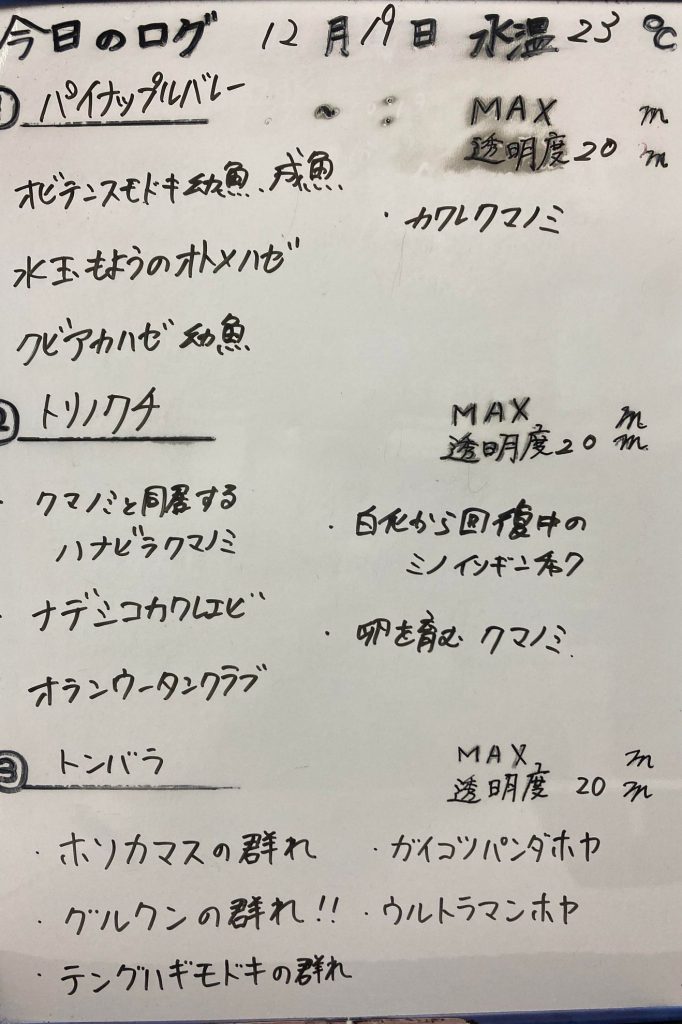 今日のログ 12月19日 水温23℃
① パイナップルバレー
MAX m
透明度20m
オビテンスモドキ幼魚、成魚
・カクレクマノミ
水玉もようのオトメハゼ
クビアカハゼ幼魚
② トリノクチ
MAX m
透明度20m
・クマノミと同居する
ハナビラクマノミ
・白化から回復中の
ミノイソギンチャク
・ナデシコカクレエビ
・卵を育む クマノミ
オランウータンクラブ
③ トンバラ
MAX m
透明度 20m
・ホソカマスの群れ
・ガイコツパンダホヤ
・グルクンの群れ!!
・ウルトラマンホヤ
・テングハギモドキの群れ